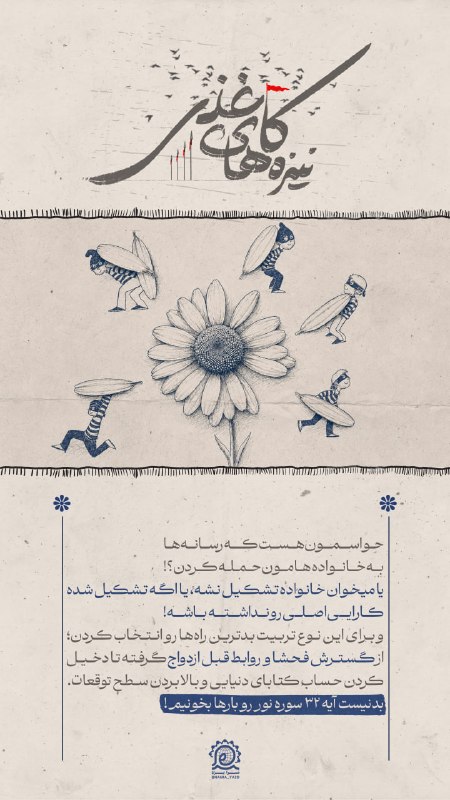 نیزه‌های کاغذی
حواسمون هست که رسانه‌ها
به خانواده‌هامون حمله کردن؟!
یا میخوان خانواده تشکیل نشه، یا اگه تشکیل شده
کارایی اصلی رو نداشته باشه!
و برای این نوع تربیت بدترین راه‌ها رو انتخاب کردن؛
از گسترش فحشا و روابط قبل ازدواج گرفته تا دخیل
کردن حساب کتابای دنیایی و بالا بردن سطح توقعات.
بد نیست آیه ۳۲ سوره نور رو بارها بخونیم!